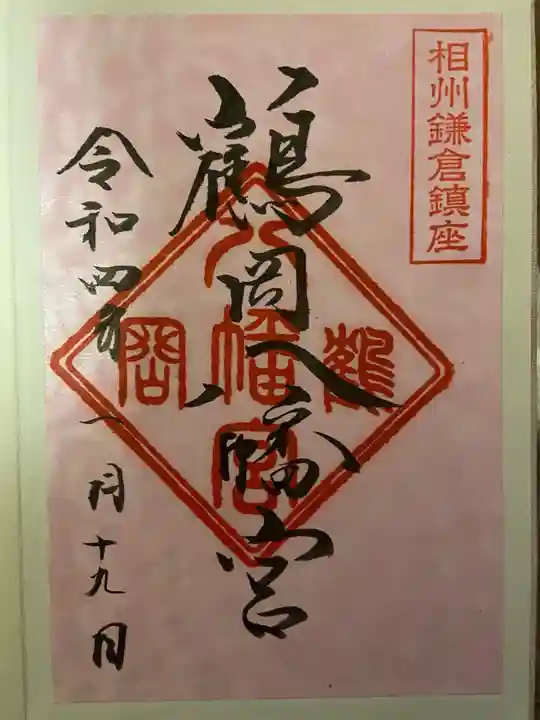 相州鎌倉鎮座
鶴岡八幡宮
鶴
八幡宮
岡
令和四年
一月十九日